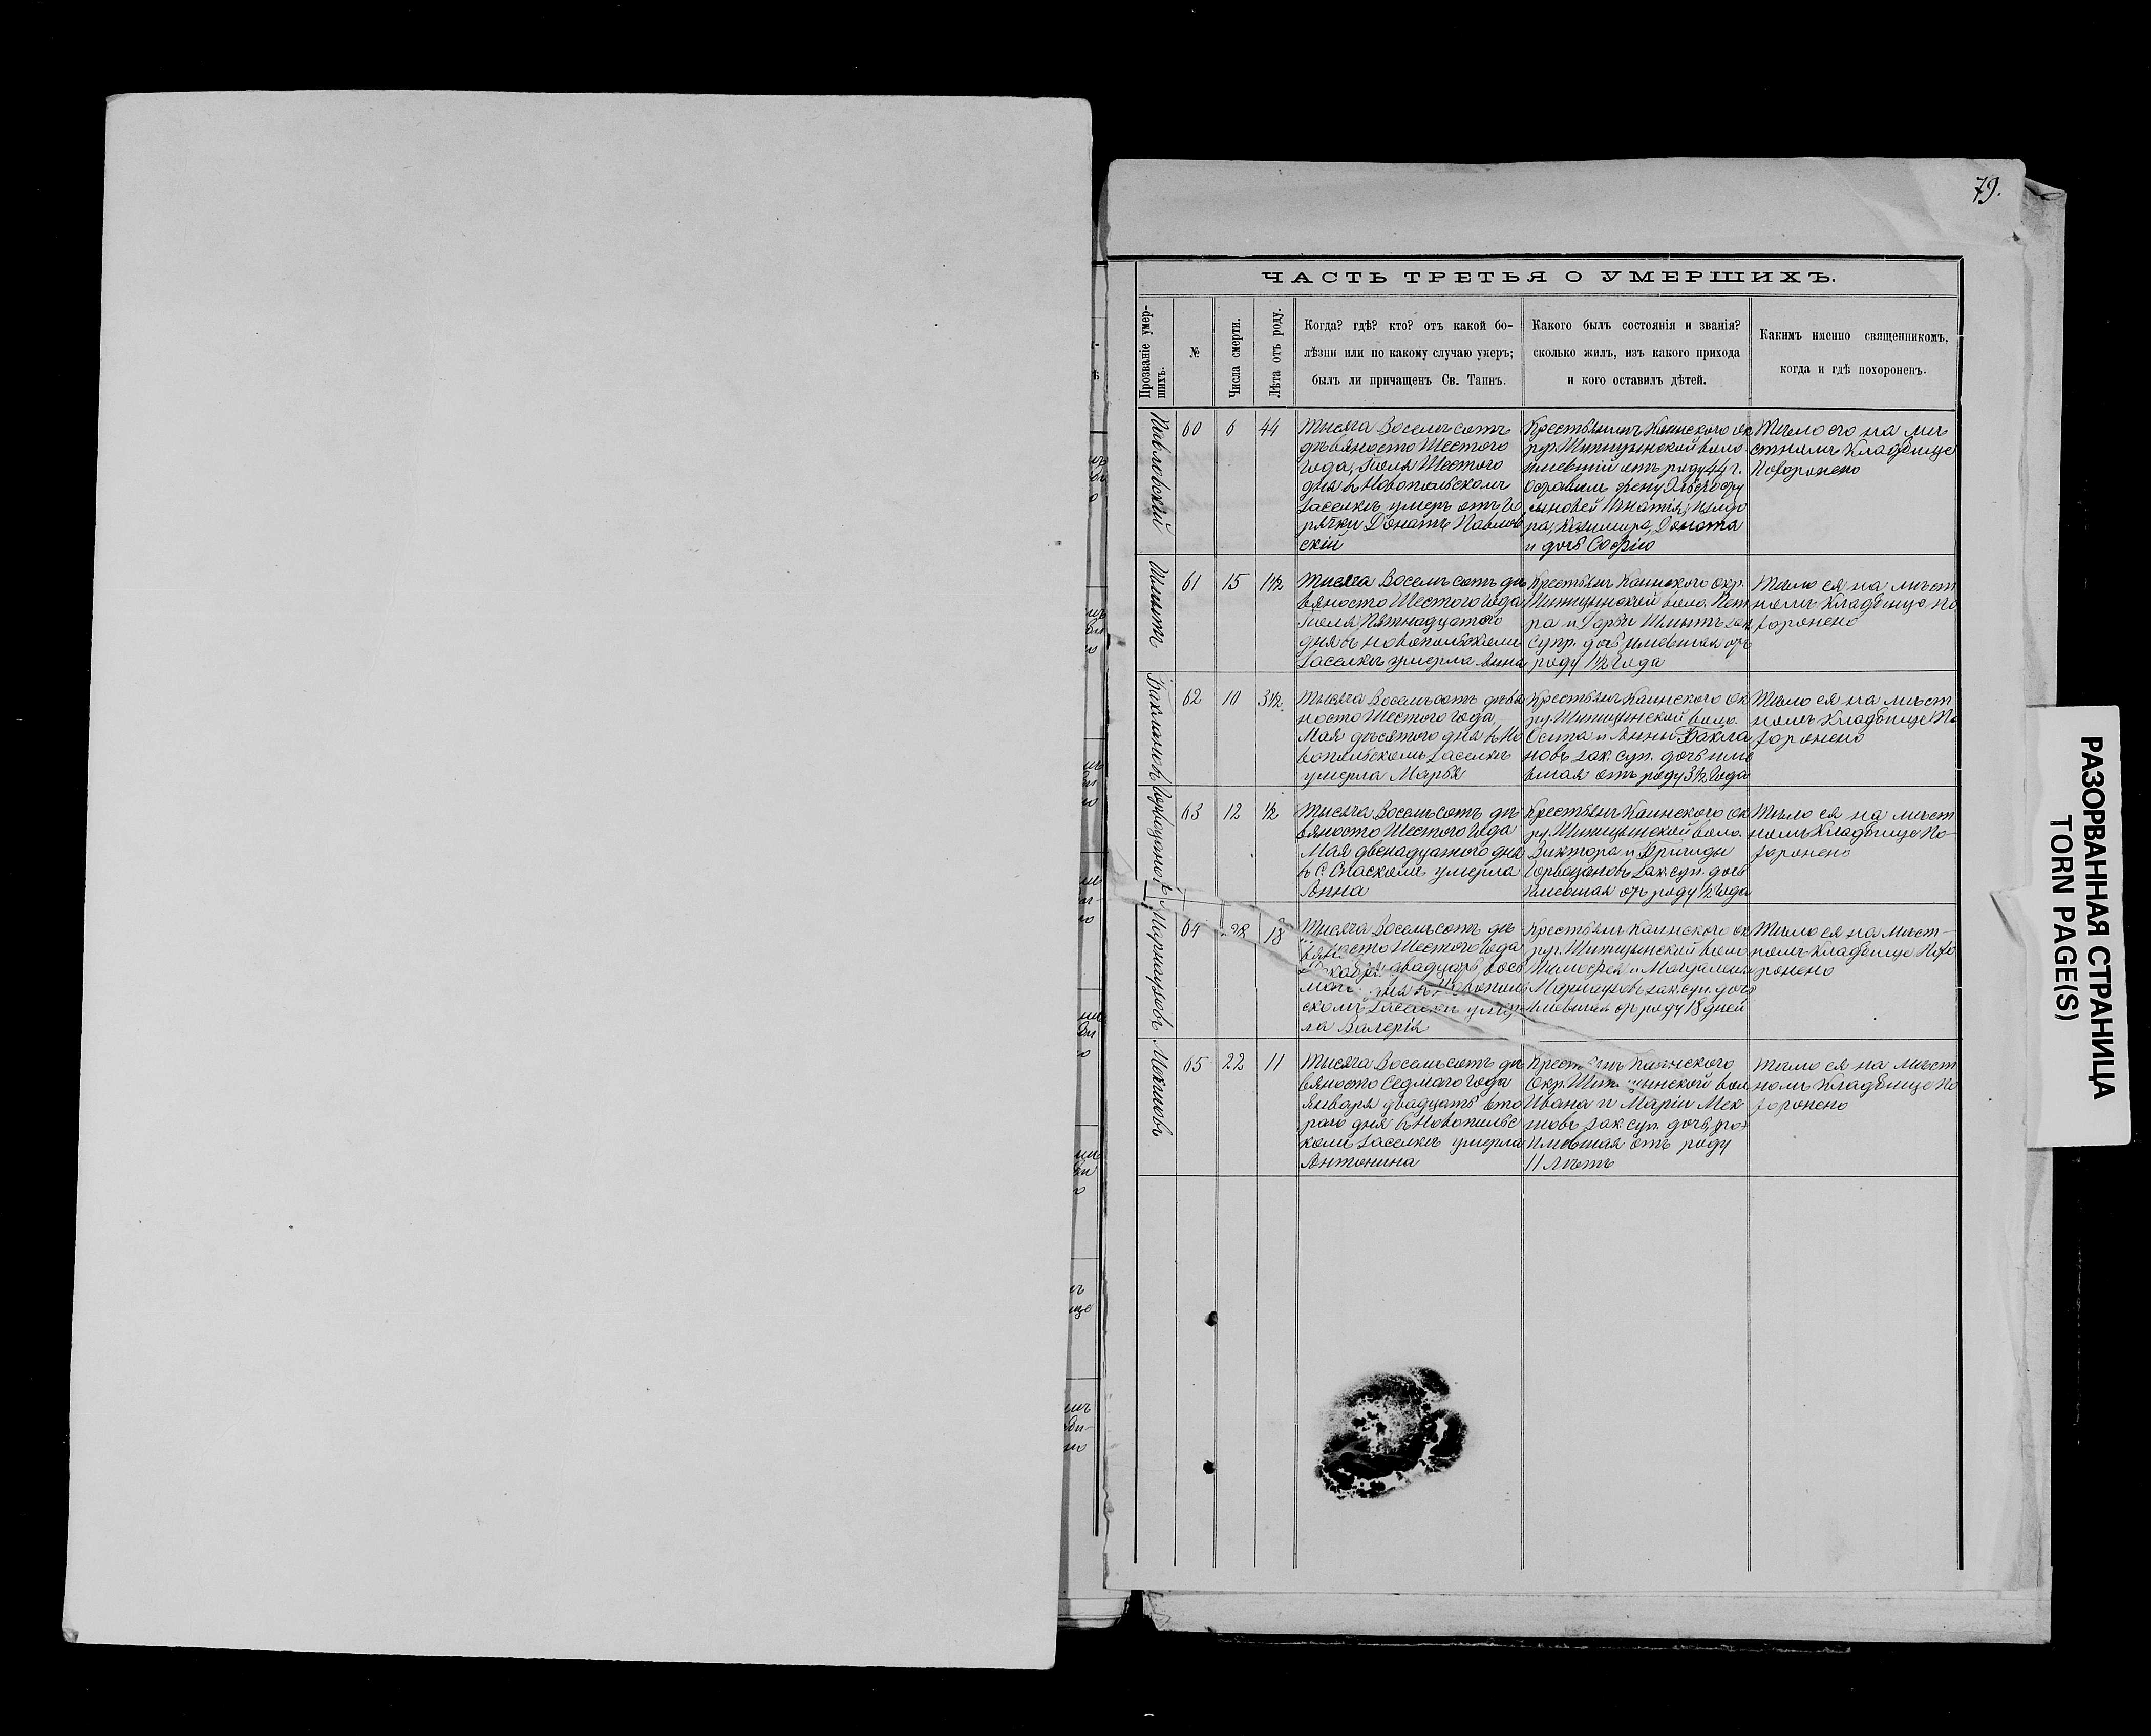 79.
ЧАСТЬ ТРЕТЬЯ О УМЕРШИХЪ.
Прозваніе умер-
шихъ.
№
Числа смерти.
Лѣта отъ роду.
Когда? гдѣ? кто? отъ какой бо-
лѣзни или по какому случаю умеръ;
былъ ли причащенъ Св. Таинъ.
Какого былъ состоянія и званія?
сколько жилъ, изъ какого прихода
и кого оставилъ дѣтей.
Какимъ именно священникомъ,
когда и гдѣ похороненъ.
Павловскій
60
6
44
Тысяча Восемьсотъ
девяносто Шестого
Года, Іюля Шестого
дня въ Новопольскомъ
Заселкѣ умеръ отъ го
рячки Донатъ Павлов
скій
Крестьянинъ Каинскаго Ок
руг. Шипицынской воло.
имевшій отъ роду 44 г.
сыновей Игнатія,
Казимира, Доната
и дочь Софію
Тѣло его на мѣ
стномъ Кладбище
Похоронено
61
15
1½
Тысяча Восемьсотъ де
вяносто Шестого Года
Іюля Пятнадцатого
дня въ Новопольскомъ
Заселкѣ умерла Анна
Крестьянъ Каинского Окр.
Шипицынской воло. Пет
ра и Зак
Супр. дочь имевшая отъ
роду 1½ Года
Тѣло ея на мѣст
номъ Кладбище По
хоронено
Баклановъ
62
10
3½
Тысяча Восемьсотъ девя
носто Шестого Года
Мая десятого дня въ Но
вопольскомъ Заселкѣ
умерла Марья
Крестьянъ Каинского Ок
ру. Шипицынской воло.
Осипа и Анны Бакла
новъ зак. суп. дочь име
вшая отъ роду 3½ Года
Тѣло ея на мѣст
номъ Кладбище По
хоронено
63
12
½
Тысяча Восемьсотъ де
вяносто Шестого Года
Мая двенадцатого дня
въ С. Спаскомъ умерла
Анна
Крестьянъ Каинского Ок
ру. Шипицынской воло.
Виктора и Бригиды
зак. суп. дочь
имевшая отъ роду ½ Года
Тѣло ея на мѣст
номъ Кладбище По-
хоронено
64
28
18
Тысяча Восемьсотъ де
вяносто Шестого Года
двадцать вось
дня въ Новополь
скомъ Заселкѣ умер
ла Валерія
Крестьянъ Каинского Ок
руг. Шипицынской воло
Тимофея и Магдалены
зак. суп. дочь
имевшая отъ роду 18 дней
Тѣло ея на мѣст-
номъ Кладбище Похо
ронено
Мекшовъ
65
22
11
Тысяча Восемьсотъ де
вяносто Седмаго Года
Января двадцать вто
раго дня въ Новопольс
комъ Заселкѣ умерла
Антонина
Крестьянъ Каинского
Окр. Шипицынской вол
Ивана и Маріи Мек
шовъ зак. суп. дочь,
имевшая отъ роду
11 лѣтъ
Тѣло ея на мѣст
номъ Кладбище По
хоронено
РАЗОРВАННАЯ СТРАНИЦА
TORN PAGE(S)